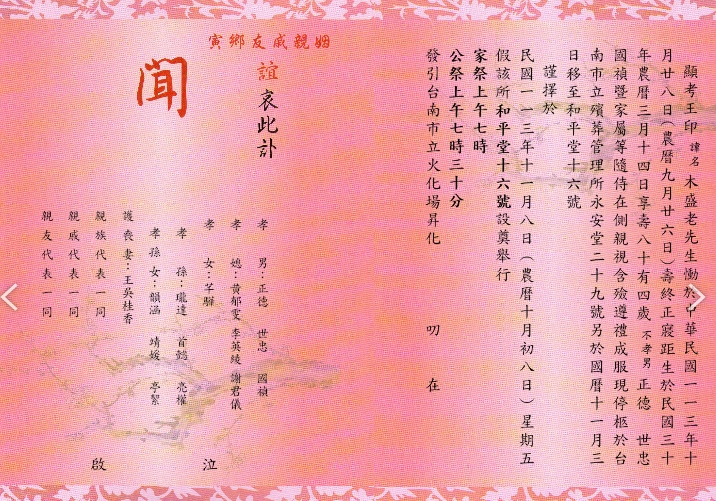 顯考王印諱名木盛老先生慟於中華民國一一三年十
月廿八日(農曆九月廿六日)壽終正寢距生於民國三十
年農曆三月十四日享壽八十有四歲不孝男正德 世忠
國禎暨家屬等隨侍在側親視含殮遵禮成服現停柩於台
南市立殯葬管理所永安堂二十九號另於國曆十一月三
日移至和平堂十六號
謹擇於
民國一一三年十一月八日(農曆十月初八日)星期五
假該所和平堂十六號設奠舉行
家祭上午七時
公祭上午七時三十分
發引台南市立火化場昇化
叨 在
姻親戚友鄉寅
誼哀此訃
聞
孝 男:正德 世忠 國禎
孝 媳:黃郁雯 李英綾 謝君儀
孝 女:芊驊
孝 孫:瓏達 首懿 亮權
孝 孫 女:韻涵 靖媛 亭絜
護喪妻:王吳桂香
親族代表一同
親戚代表一同
親友代表一同
泣 啟